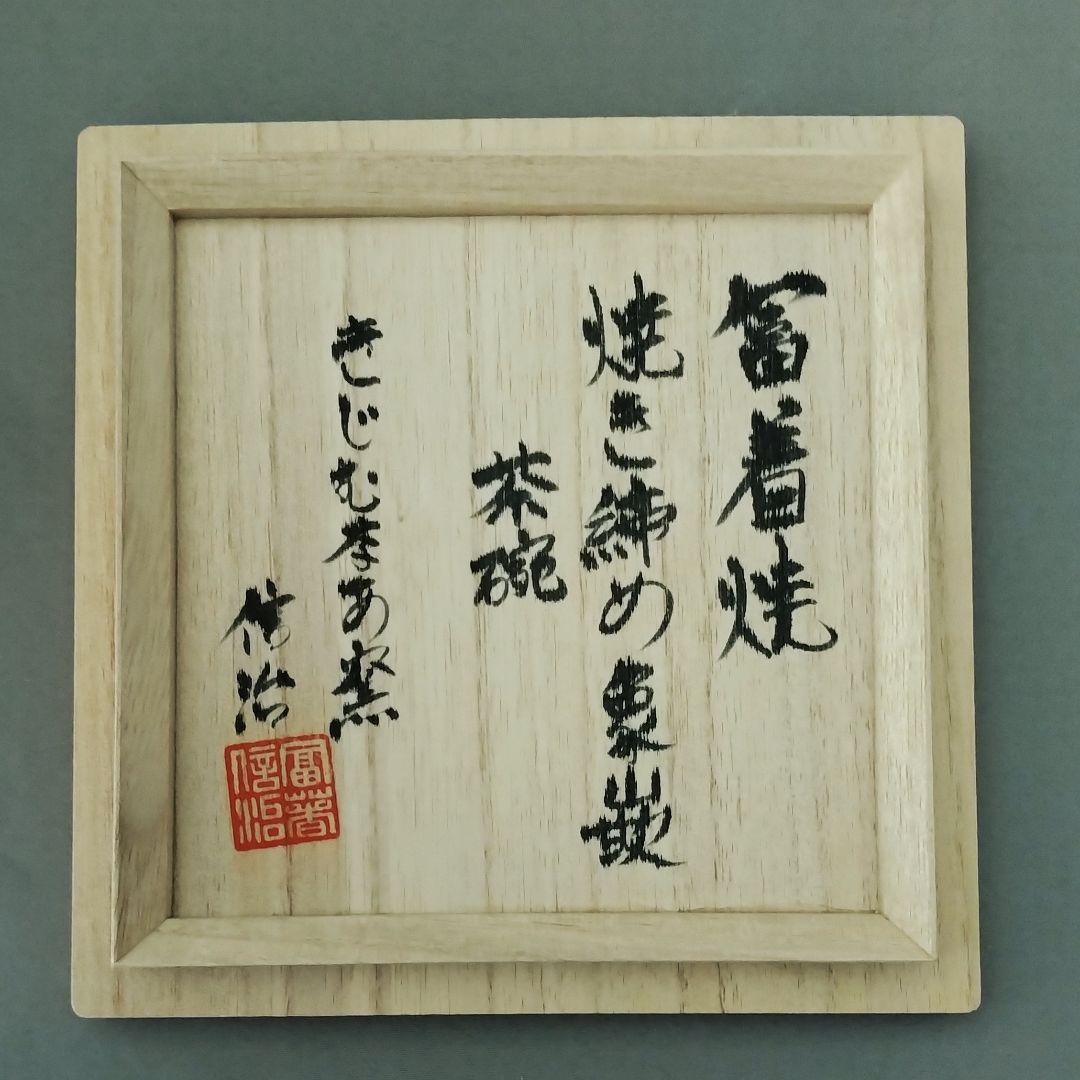 冨着焼
焼き締め象嵌
茶碗
きじむなあ窯
信治
富着
信治